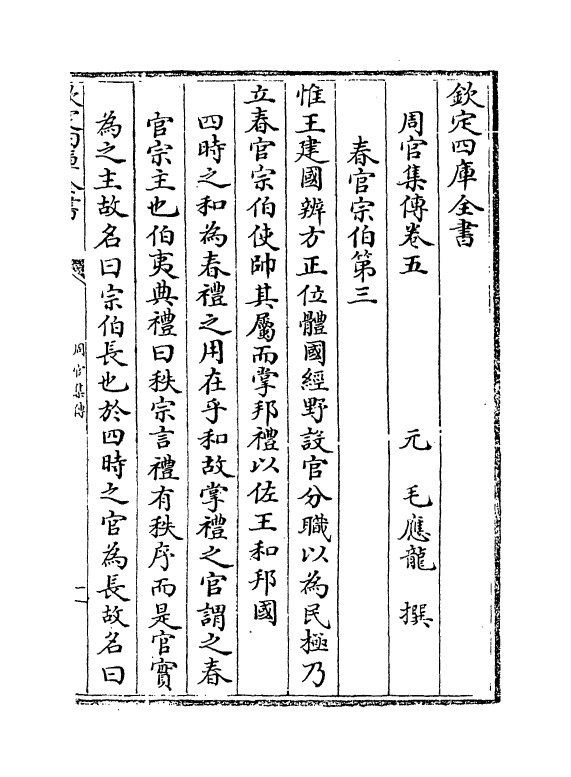 欽定四庫全書
周官集傳卷五
元 毛應龍 撰
春官宗伯第三
惟王建國辨方正位體國經野設官分職以為民極乃
立春官宗伯使帥其屬而掌邦禮以佐王和邦國
四時之和為春禮之用在乎和故掌禮之官謂之春
官宗主也伯夷典禮曰秩宗言禮有秩序而是官實
為之主故名曰宗伯長也於四時之官為長故名曰
欽定四庫全書
周官集傳
一